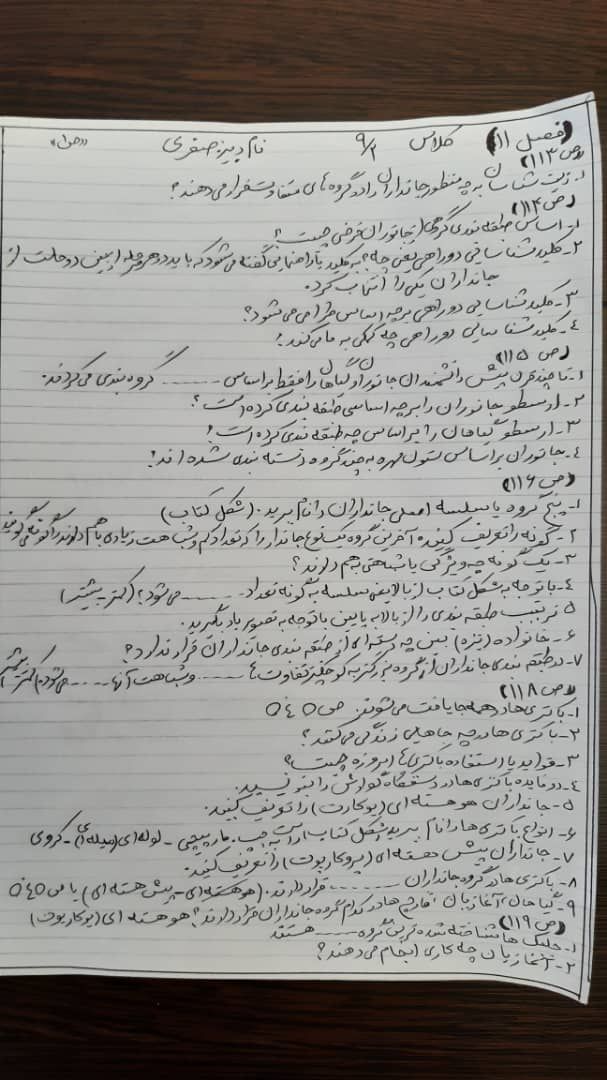 (فصل ۱۱) کلاس ۹/۲ نام دبیر: صفری «ص۱»
(ص ۱۱۳)
۱- زیست شناسان به چه منظور جانداران را در گروه های متفاوت قرار می دهند؟
(ص ۱۱۴)
۱- اساس طبقه بندی گروهی از جانوران فرضی چیست؟
۲- کلید شناسایی دوراهی یعنی چه؟ به کلید یا راهنمایی گفته می شود که باید در هر مرحله از بین دو حالت از
جانداران یکی را انتخاب کرد.
۳- کلید شناسایی دوراهی بر چه اساس طراحی می شود؟
۴- کلید شناسایی دوراهی چه کمکی به ما می کند؟
(ص ۱۱۵)
۱- تا چند قرن پیش دانشمندان جانوران و گیاهان را فقط بر اساس ........ گروه بندی می کردند.
۲- ارسطو جانوران را بر چه اساسی طبقه بندی کرده است؟
۳- ارسطو گیاهان را بر اساس چه طبقه بندی کرده است؟
۴- جانوران بر اساس ستون مهره به چند گروه دسته بندی شده اند؟
(ص ۱۱۶)
۱- پنج گروه یا سلسله اصلی جانداران را نام ببرید. (شکل کتاب)
۲- گونه را تعریف کنید؟ آخرین گروه یک نوع جاندار را که تعداد کم و شباهت زیادی با هم دارند را گونه می گویند
۳- یک گونه چه ویژگی یا شباهتی با هم دارند؟
۴- با توجه به شکل کتاب از بالا یعنی سلسله به گونه تعداد ........ می شود؟ (کمتر - بیشتر)
۵- ترتیب طبقه بندی را از بالا به پایین با توجه به تصویر یاد بگیرید.
۶- خانواده (تیره) بین چه دسته ای از طبقه بندی جانداران قرار دارد؟
۷- در طبقه بندی جانداران از گروه بزرگتر به کوچکتر تفاوت ها ...... و شباهت آنها ..... می شود (کمتر - بیشتر)
(ص ۱۱۸)
۱- باکتری ها در همه جا یافت می شوند. ص ○ غ ○
۲- باکتری ها در چه جاهایی زندگی می کنند؟
۳- فواید یا استفاده باکتری ها امروزه چیست؟
۴- دو فایده باکتری ها در دستگاه گوارش را بنویسید.
۵- جانداران هو هسته ای (یوکاریوت) را تعریف کنید.
۶- انواع باکتری ها را نام ببرید (شکل کتاب) از راست به چپ. مارپیچی - لوله ای (میله ای) - کروی
۷- جانداران پیش هسته ای (پروکاریوت) را تعریف کنید.
۸- باکتری ها در گروه جانداران ........ قرار دارند. (هو هسته ای - پیش هسته ای) یا ص ○ غ ○
۹- گیاهان آغازیان، قارچ ها در کدام گروه جانداران قرار دارند؟ هو هسته ای (یوکاریوت)
(ص ۱۱۹)
۱- جلبک ها شناخته شده ترین گروه ........ هستند
۲- آغازیان چه کاری انجام می دهند؟